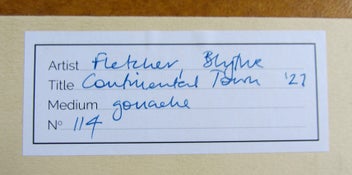 Artist Fletcher, Blythe
Title Continental Town '27
Medium gouache
No 114